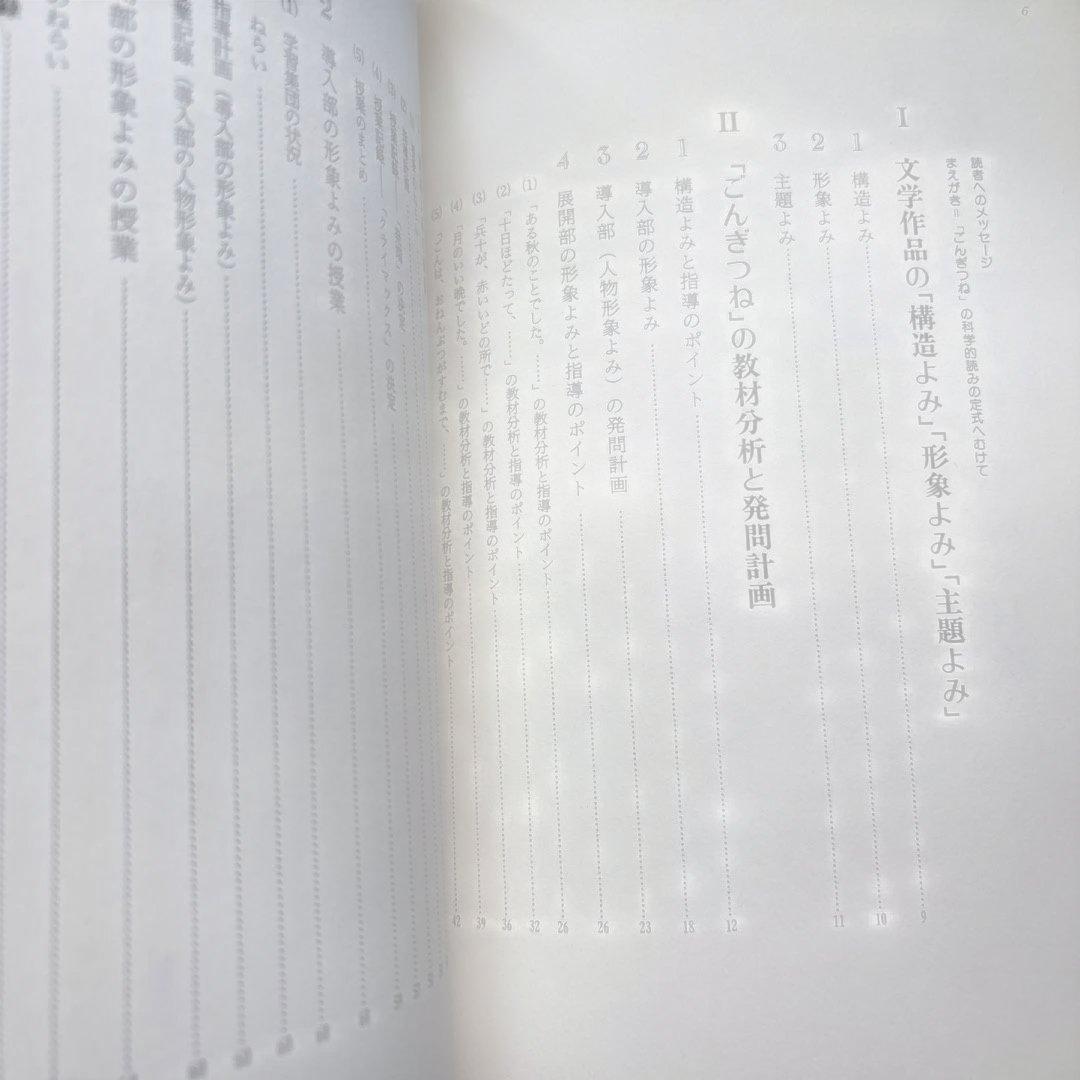 6
読者へのメッセージ
まえがき＝「ごんぎつね」の科学的読みの定式へむけて
I 文学作品の「構造よみ」「形象よみ」「主題よみ」
1 構造よみ 9
2 形象よみ 10
3 主題よみ 11
II 「ごんぎつね」の教材分析と発問計画
1 構造よみと指導のポイント 12
2 導入部の形象よみ 18
3 導入部（人物形象よみ）の発問計画 23
4 展開部の形象よみと指導のポイント 26
(1) 「ある秋のことでした。……」の教材分析と指導のポイント 26
(2) 「十日ほどたって、……」の教材分析と指導のポイント 32
(3) 「兵十が、赤いいどの所で……」の教材分析と指導のポイント 36
(4) 「月のいい晩でした。……」の教材分析と指導のポイント 39
(5) 「ごんは、おねんぶつがすむまで、……」の教材分析と指導のポイント 42
(4) 授業記録 「クライマックス」の決定
(5) 授業のまとめ
2 導入部の形象よみの授業
(1) 学習集団の状況
ねらい
指導計画（導入部の形象よみ）
授業記録（導入部の人物形象よみ）
部の形象よみの授業
ねらい